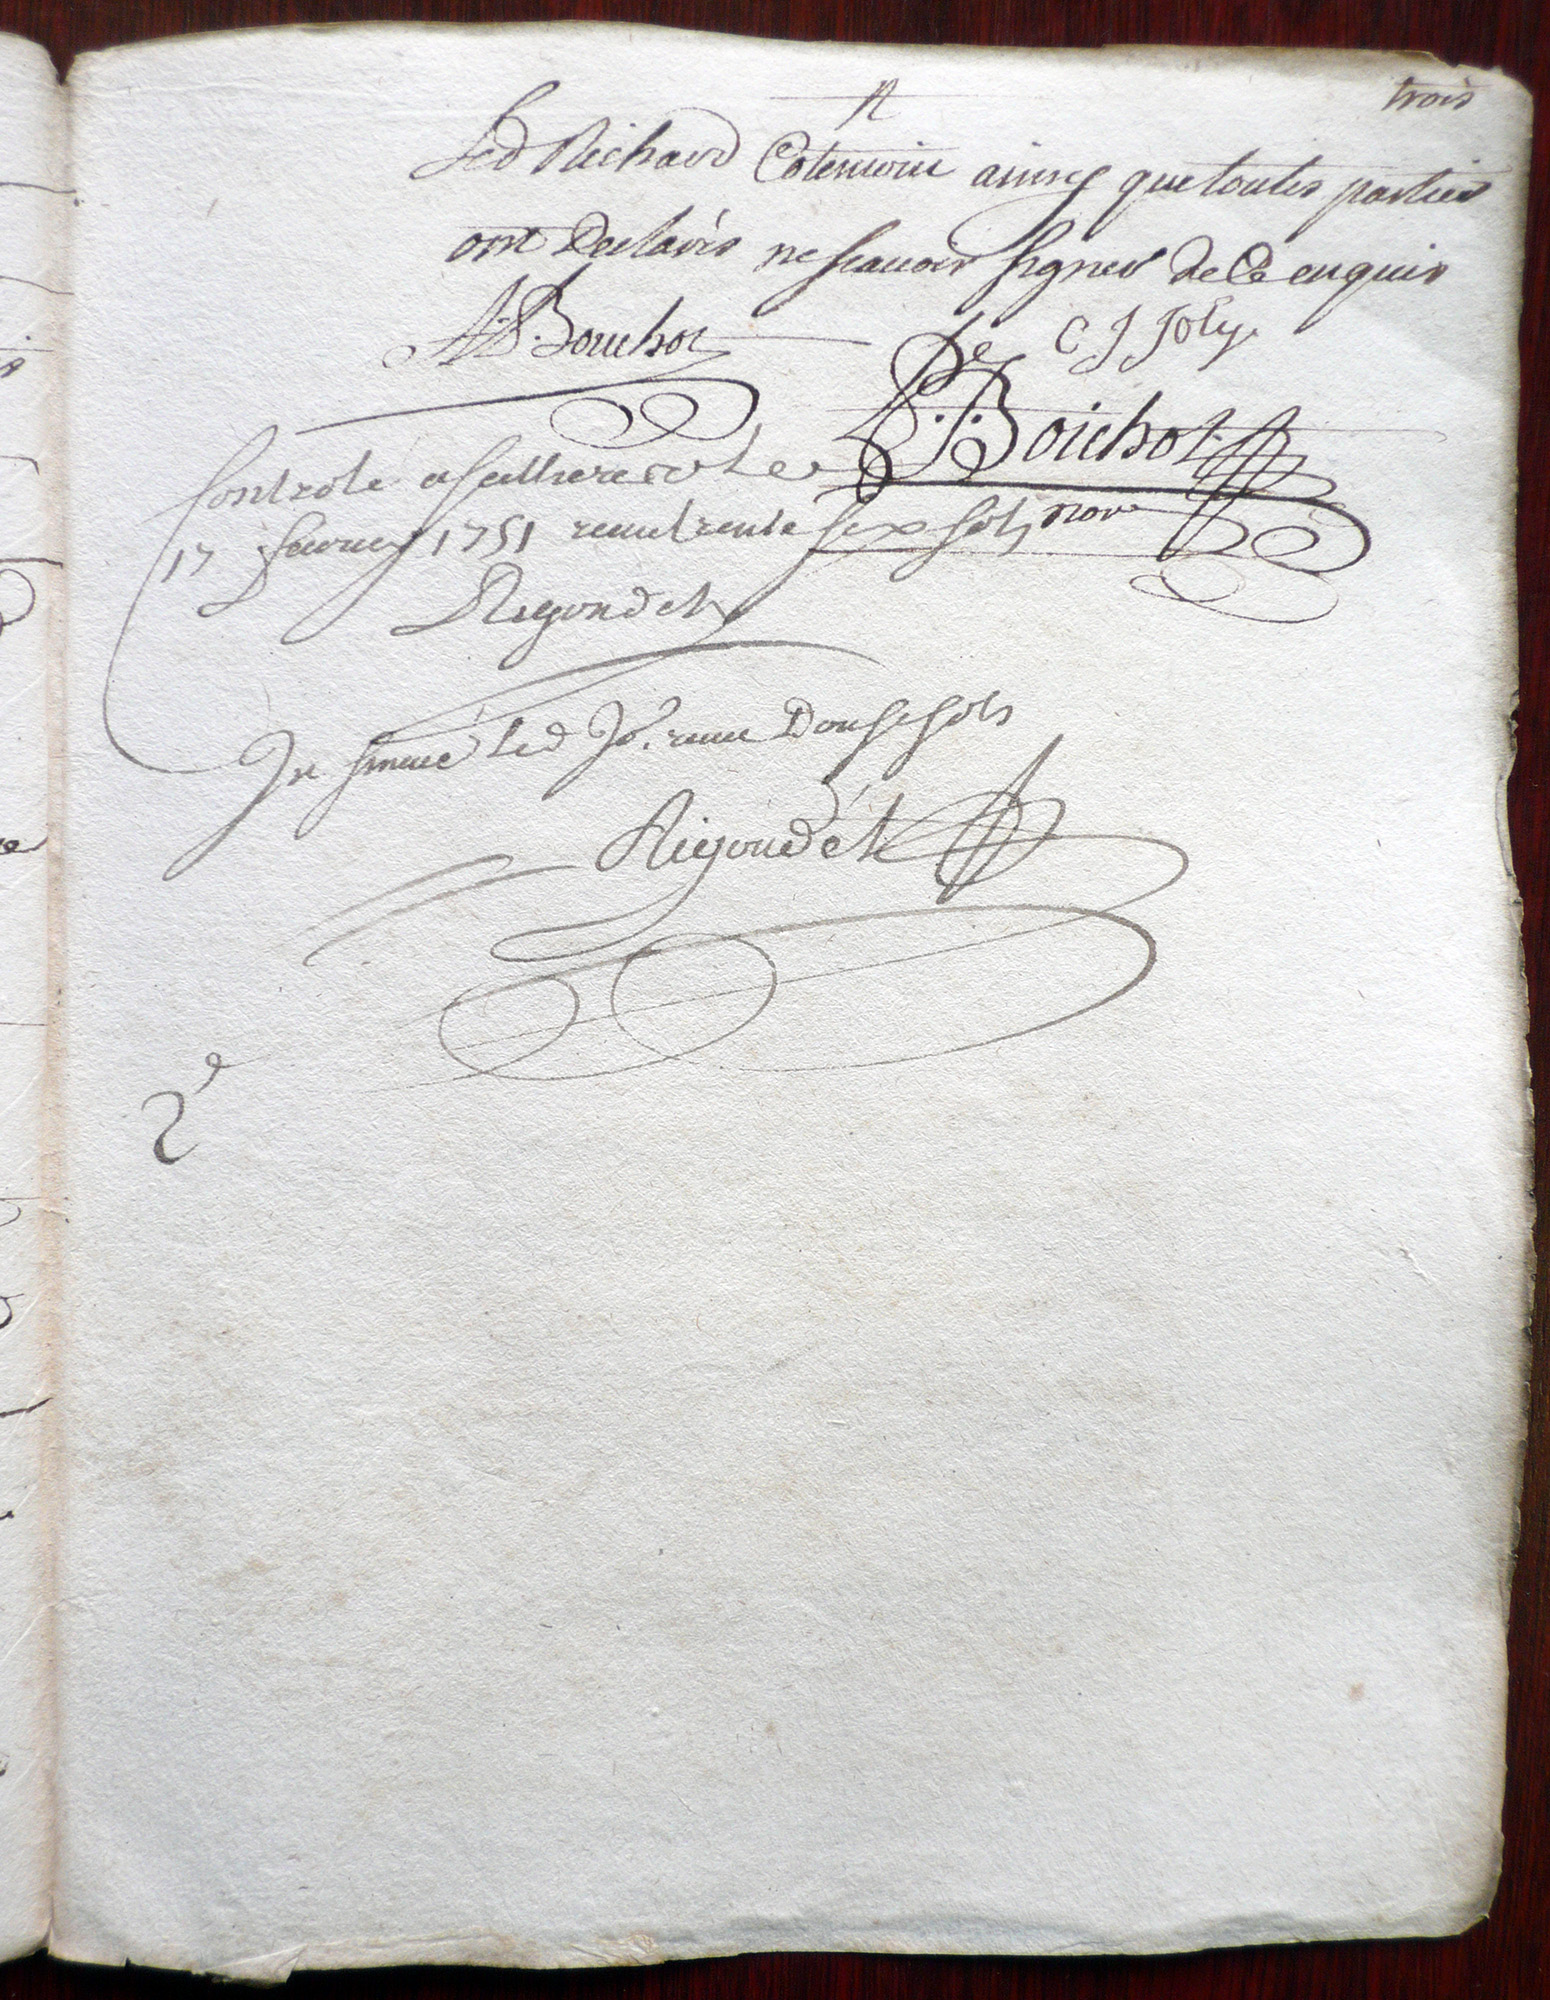 trois
Led Richard Cotemoin ainsy que toutes parties
ont declarés ne scauoir signer de ce enquis
A:P. Bouchot
C J Joly.
P. J. Boichot nore
Controlé a Sellieres Le
17 feurier 1751 receu trente six sols
Rigondet
In sinué Led Jo.r receu Douse sols
Rigondet
2e